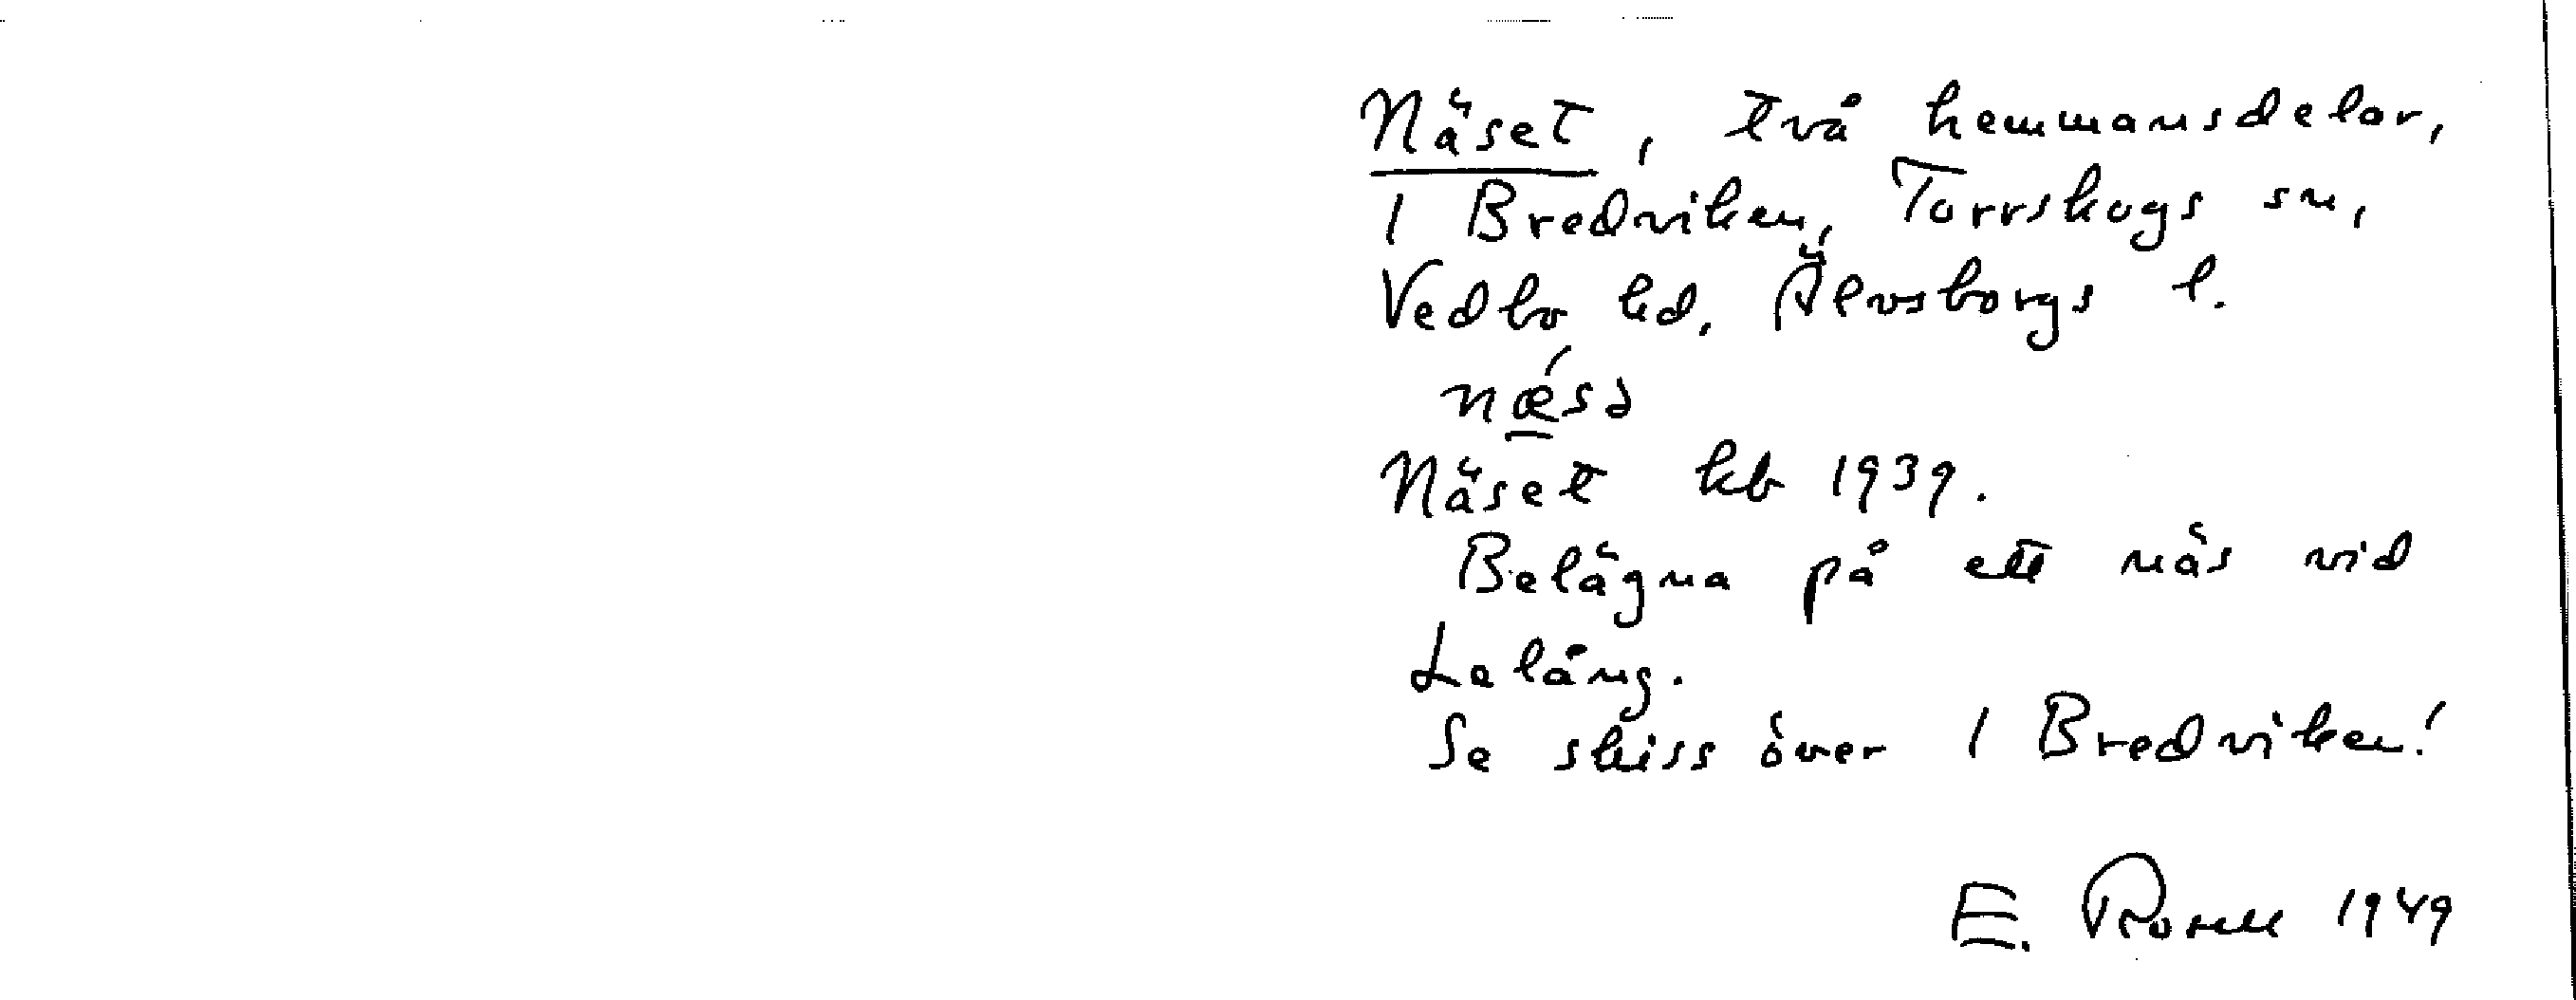 Näset, två hemmansdelar,
1 Bredviken, Torrskogs sn,
Vedbo hd, Älvsborgs l.
nǽsə
Näset kb 1939.
Belägna på ett näs vid
Lelång.
Se skiss över 1 Bredviken!
E. Rosell 1949